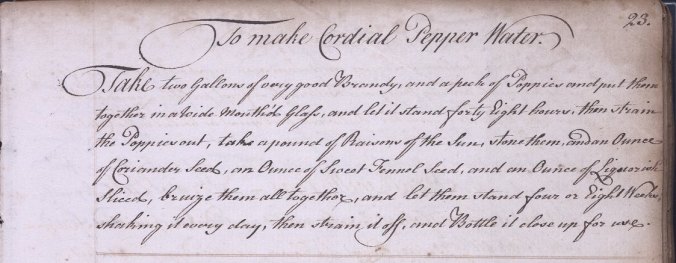 23.
To make Cordial Pepper Water.
Take two Gallons of very good Brandy, and a peck of Poppies and put them
together in a Wide Mouth'd Glass, and let it stand forty Eight hours, then strain
the Poppies out, take a pound of Raisons of the Sun, stone them, and an Ounce
of Coriander Seed, an Ounce of Sweet Fennel Seed, and an Ounce of Liquorish
Sliced, bruize them all together, and let them stand four or Eight Weeks,
shaking it every day, then strain it off, and Bottle it close up for use.